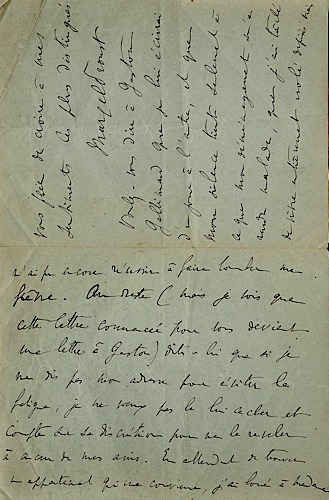 vous prie de croire à mes
sentiments les plus distingués
Marcel Proust
Voulez-vous dire à Gaston
Gallimard que je lui écrirai
d'un jour à l'autre, et que
mon silence tient seulement à
ce que mon déménagement m'a
rendu malade, que j'ai
de depuis mais
n'ai pu encore réussir à faire tomber ma
fièvre. Du reste (mais je vois que
cette lettre commencée pour vous devient
une lettre à Gaston) dites-lui que si je
ne dis pas mon adresse pour éviter la
fatigue, je ne veux pas la lui celer et
compte sur sa discrétion pour ne la révéler
à aucun de mes amis. En attendant de trouver
un appartement qui me convienne, j'ai loué à Madame